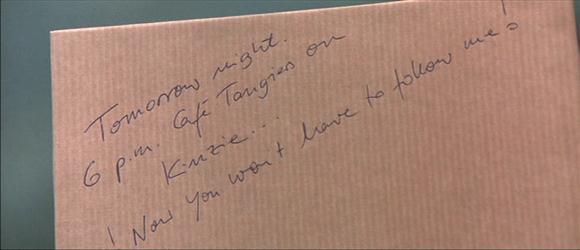 Tomorrow night.
6 p.m. Café Tangiers on
Kinzie...
! Now you won't have to follow me!